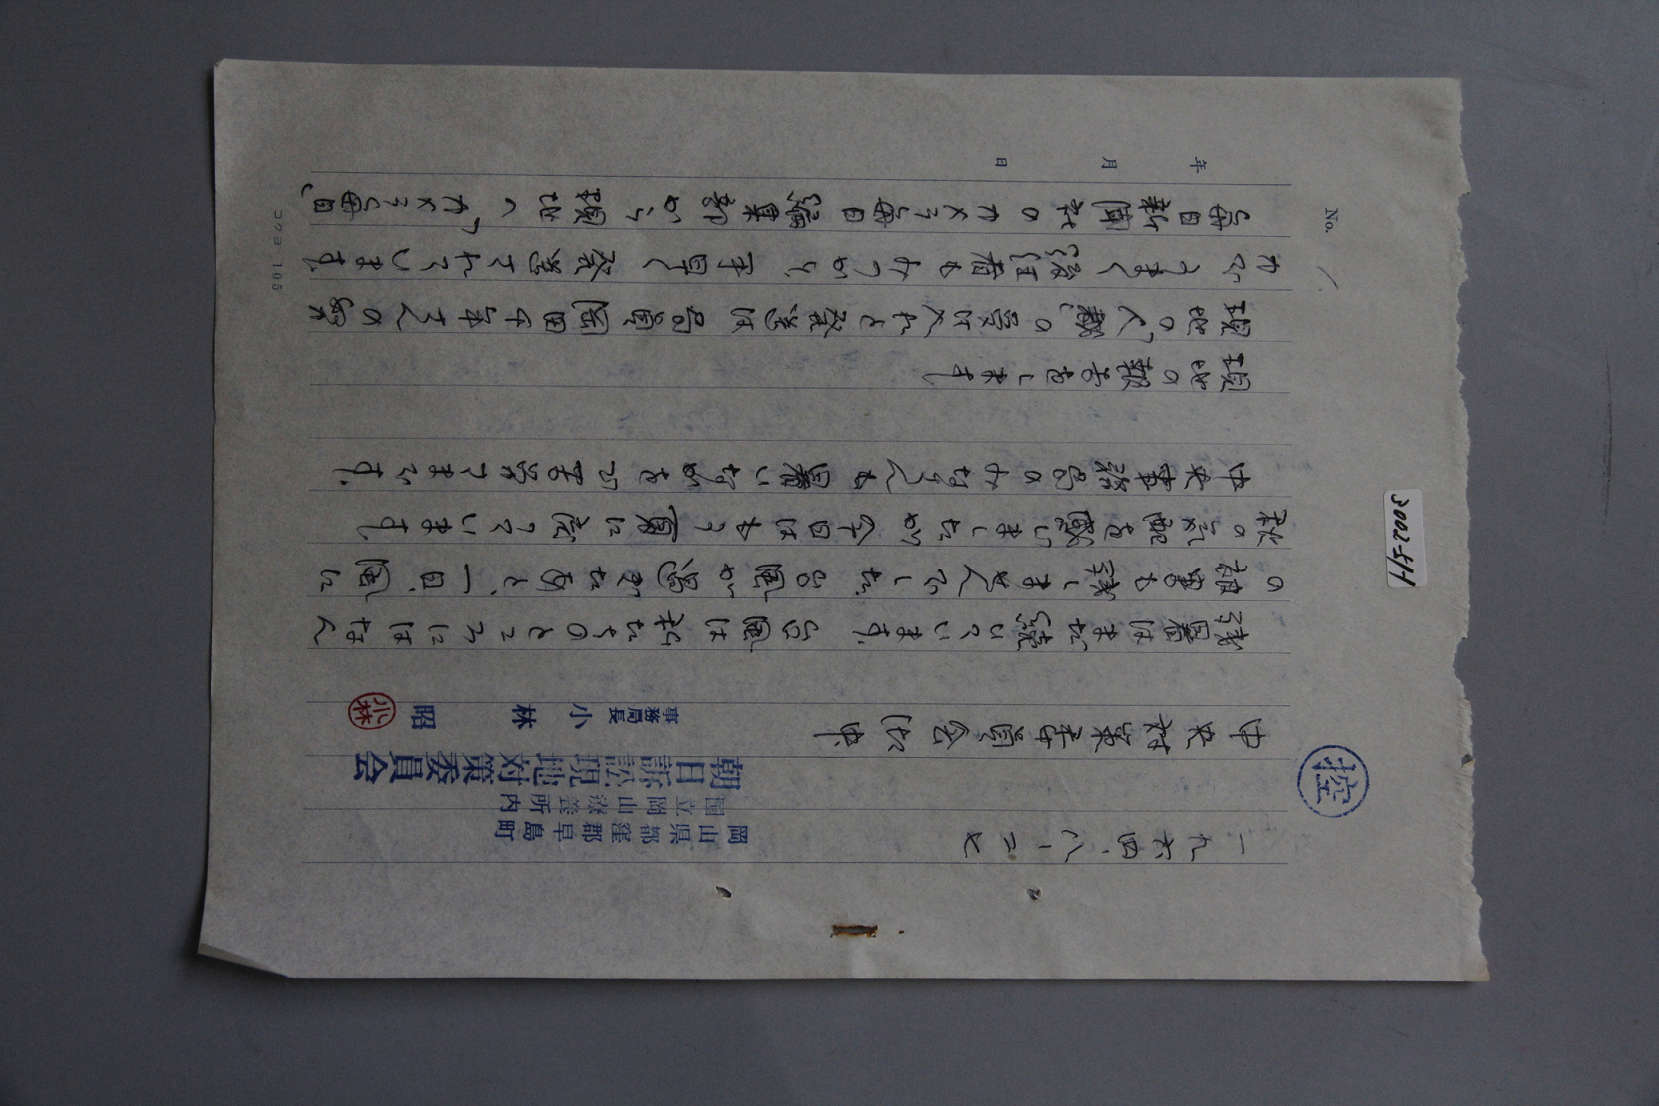 控
3002-54-1
No. 1
年 月 日
一九六四、八、二七
岡山県都窪郡早島町
国立岡山療養所内
朝日訴訟現地対策委員会
事務局長 小林 昭
小林
中央対策委員会 御中
残暑はまだ続いています。台風は私たちのところにはなん
の被害も残しませんでした。台風が過ぎたあと、一日、風に
秋の気配を感じましたが今日はもう夏に戻っています
中央事務局のみなさんも暑いなかをご苦労さまです。
現地の報告をします
現地の の受け入れと発送は局員 田千年さんの努
力でうまく後任者もみつかり、手早く発送されています。
毎日新聞社のカメラ毎日編集部から現地へ「カメラ毎日、
コクヨ 165